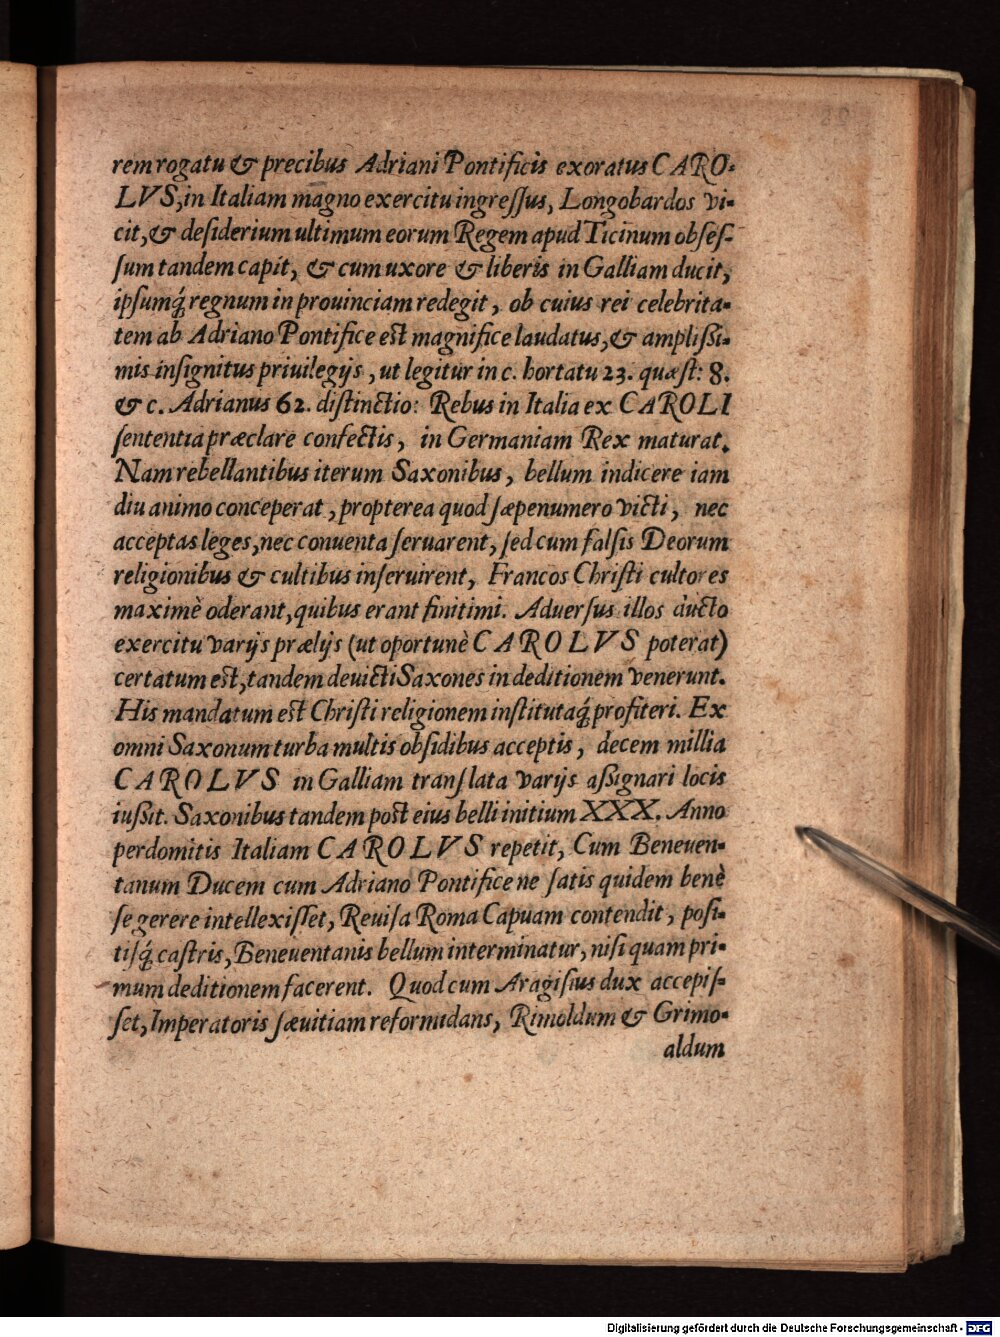 rem rogatu & precibus Adriani Pontificis exoratus CARO-
LVS, in Italiam magno exercitu ingreſſus, Longobardos vi-
cit, & deſiderium ultimum eorum Regem apud Ticinum obſeſ-
ſum tandem capit, & cum uxore & liberis in Galliam ducit,
ipſumq́ regnum in prouinciam redegit, ob cuius rei celebrita-
tem ab Adriano Pontifice eſt magnifice laudatus, & ampliſsi-
mis inſignitus priuilegijs, ut legitur in c. hortatu 23. quæſt: 8.
& c. Adrianus 62. diſtinctio: Rebus in Italia ex CAROLI
ſententia præclare confectis, in Germaniam Rex maturat.
Nam rebellantibus iterum Saxonibus, bellum indicere iam
diu animo conceperat, propterea quod ſæpenumero victi, nec
acceptas leges, nec conuenta ſeruarent, ſed cum falſis Deorum
religionibus & cultibus inſeruirent, Francos Chriſti cultores
maximè oderant, quibus erant finitimi. Aduerſus illos ducto
exercitu varijs prælijs (ut oportunè CAROLVS poterat)
certatum eſt, tandem deuicti Saxones in deditionem venerunt.
His mandatum eſt Chriſti religionem inſtitutaq́ profiteri. Ex
omni Saxonum turba multis obſidibus acceptis, decem millia
CAROLVS in Galliam tranſlata varijs aſsignari locis
iuſsit. Saxonibus tandem poſt eius belli initium XXX. Anno
perdomitis Italiam CAROLVS repetit, Cum Beneuen-
tanum Ducem cum Adriano Pontifice ne ſatis quidem benè
ſe gerere intellexiſſet, Reuiſa Roma Capuam contendit, poſi-
tiſq́ caſtris, Beneuentanis bellum interminatur, niſi quam pri-
mum deditionem facerent. Quod cum Aragiſius dux accepiſ-
ſet, Imperatoris ſæuitiam reformidans, Rimoldum & Grimo-
aldum
Digitalisierung gefördert durch die Deutsche Forschungsgemeinschaft - DFG